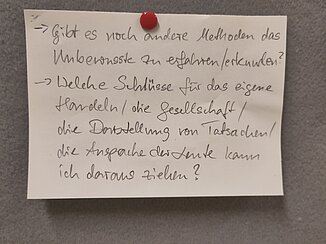 → Gibt es noch andere Methoden das
Unbewusste zu erfahren/erkunden?
→ Welche Schlüsse für das eigene
Handeln/die Gesellschaft/
die Darstellung von Tatsachen/
die Ansprache der Leute kann
ich daraus ziehen?